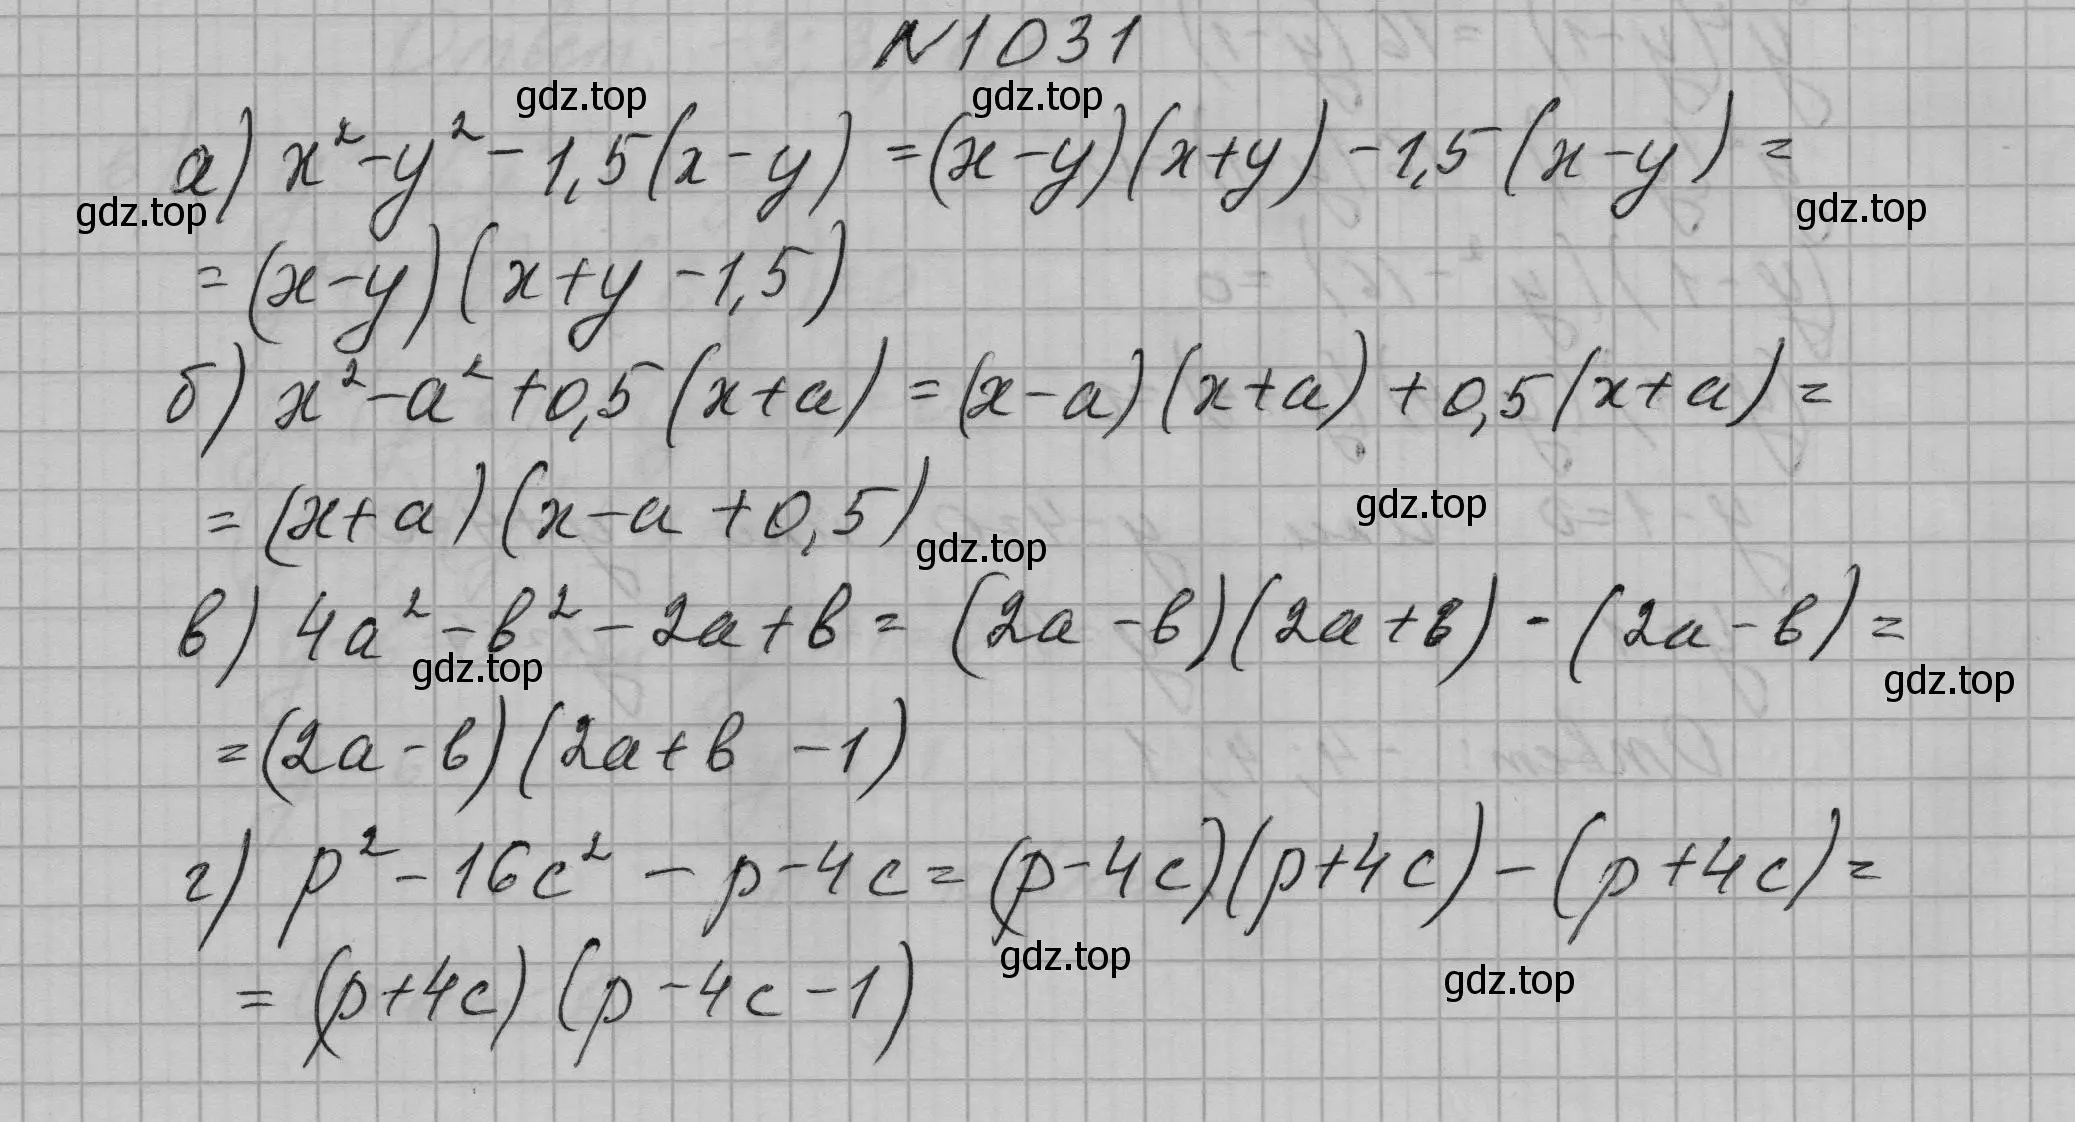 N 1031
а) x² - y² - 1,5(x - y) = (x - y)(x + y) - 1,5(x - y) =
= (x - y)(x + y - 1,5)
б) x² - a² + 0,5(x + a) = (x - a)(x + a) + 0,5(x + a) =
= (x + a)(x - a + 0,5)
в) 4a² - в² - 2a + в = (2a - в)(2a + в) - (2a - в) =
= (2a - в)(2a + в - 1)
г) p² - 16c² - p - 4c = (p - 4c)(p + 4c) - (p + 4c) =
= (p + 4c)(p - 4c - 1)
gdz.top
gdz.top
gdz.top
gdz.top
gdz.top
gdz.top
gdz.top
gdz.top
gdz.top
gdz.top